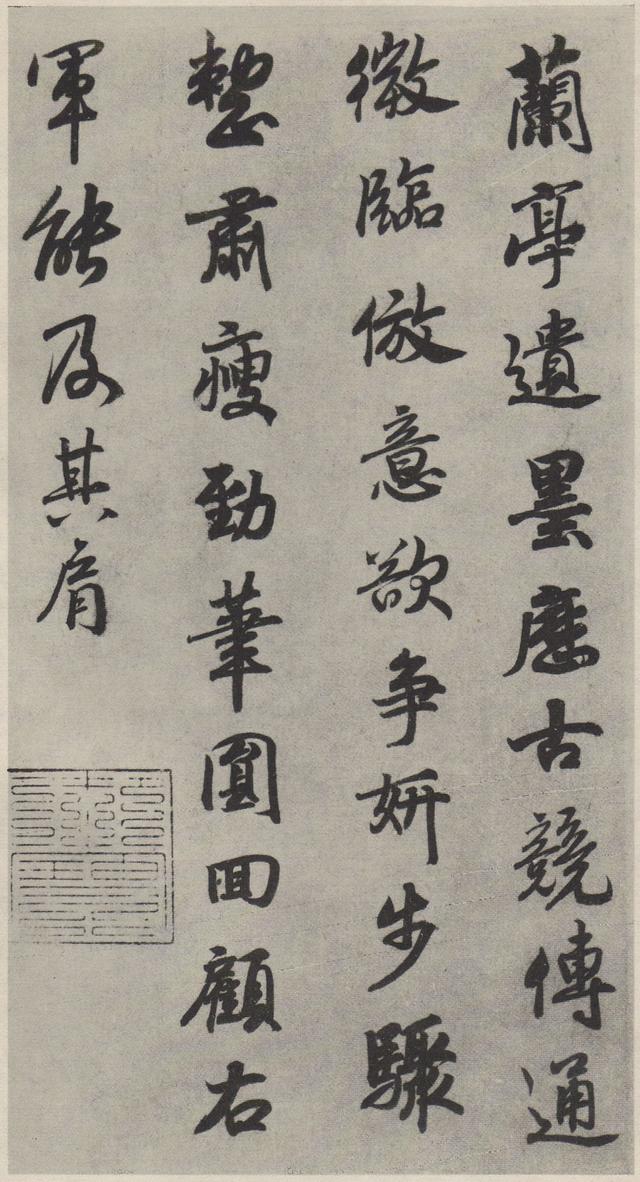 蘭亭遺墨歷古競傳通
微臨倣意欲争妍步驟
整肅瘦勁筆圓回顧右
軍能及其肩